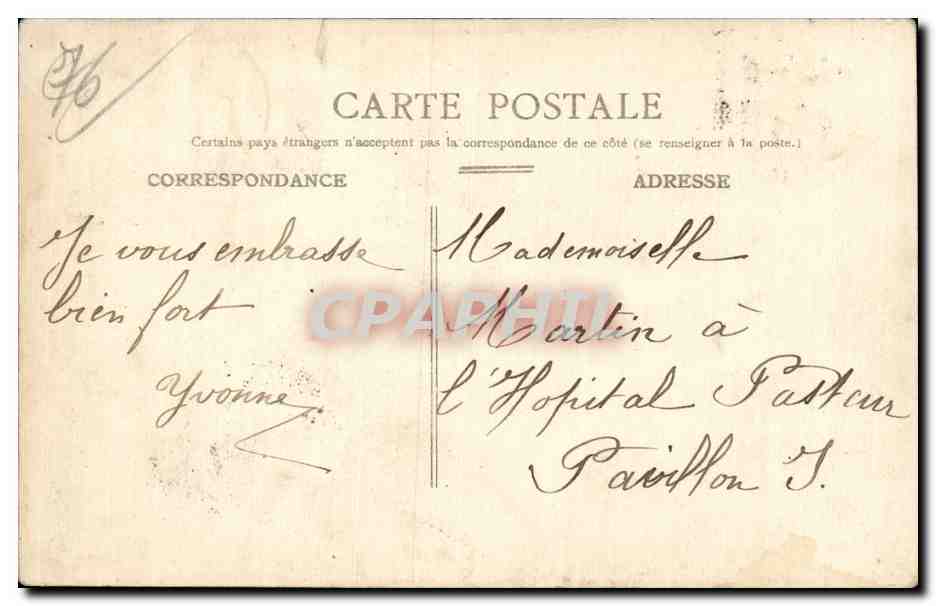 76
CARTE POSTALE
Certains pays étrangers n'acceptent pas la correspondance de ce côté (se renseigner à la poste.)
CORRESPONDANCE
ADRESSE
Je vous embrasse
bien fort
Yvonne
Mademoiselle
Martin à
l'Hopital Pasteur
Pavillon J.
CPAPHIL